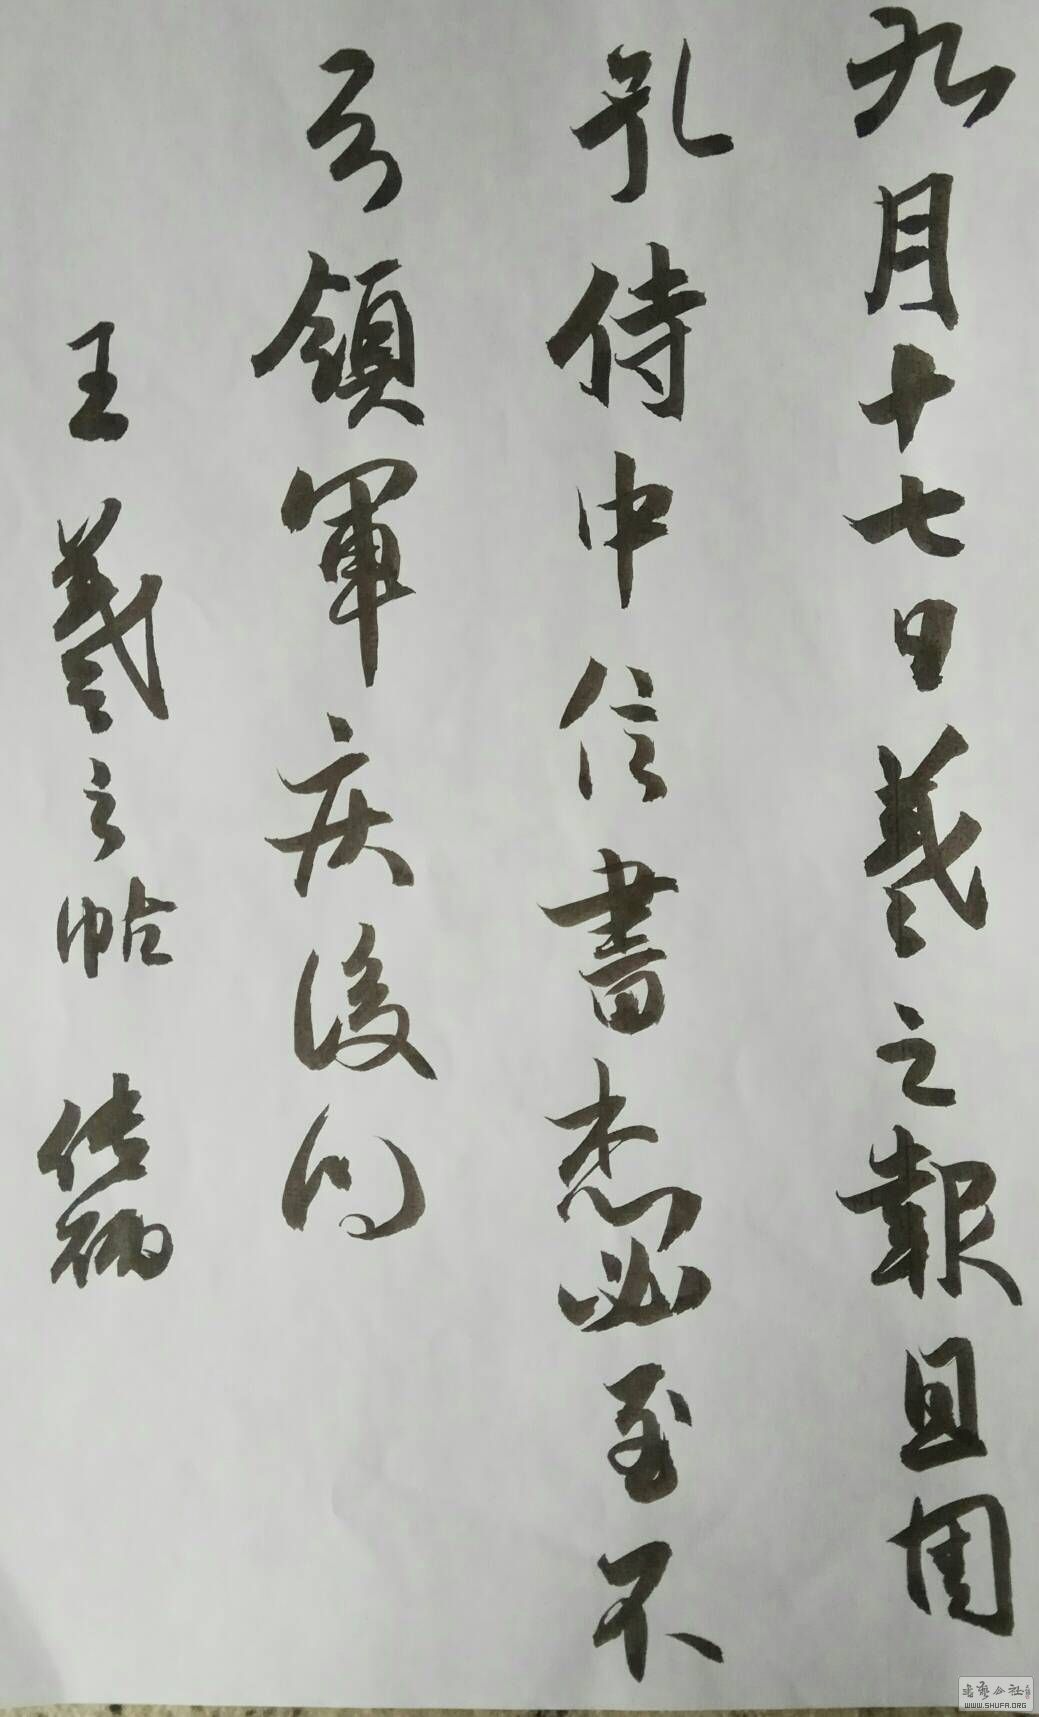 九月十七日羲之報且因
孔侍中信書想必至不
知領軍疾後問
王羲之帖
書藝公社
WWW.SHUFA.ORG